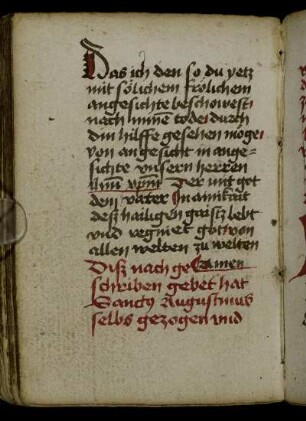 Das ich den so du yetz
mit sölichem frölichem
angesichte beschowest
nach mine tode durch
din hilffe gesehen möge
von angesicht in ange-
sichte vnsern herren
ihm xpm Der mit got
dem vater In ainikait
deß hailigen gaistz lebt
vnd regniet got von
allen welten zu welten
Diß nach ge Amen
schriben gebet hat
Sanctus Augustinus
selbs gezogen vnd